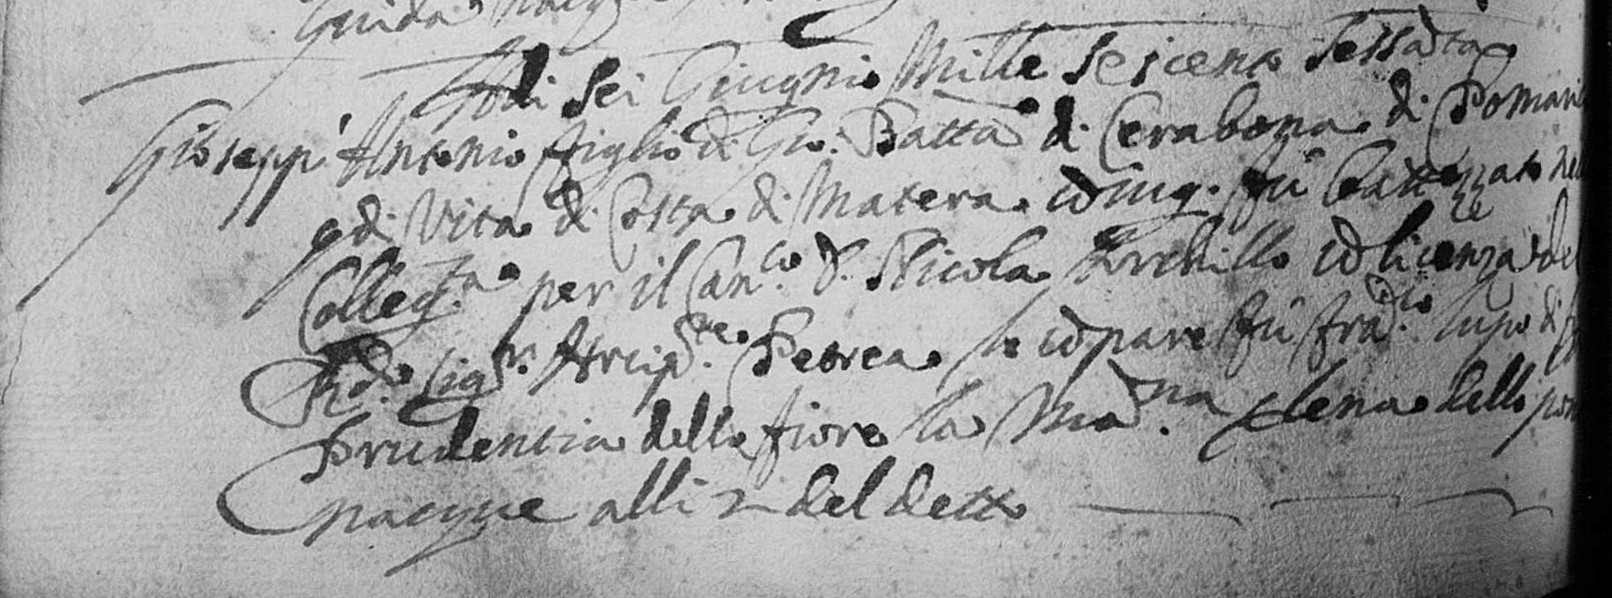 Guida nacque
Adi sei Giugnio Mille seicento sessãta
Gioseppi Antonio figlio di Gio: Batta di Cerabona di Pomari
e di Vita di Costa di Matera cõiug. fu battezzato nel
Colleg.ta per il Can.co D. Nicola cõ licenza del
R.do sig.r Arcip.te Petrea lo cõpare fu Frã.co lupo di
Prudentia dello fiore la Mãna Elena dello
nacque alli 2 del detto